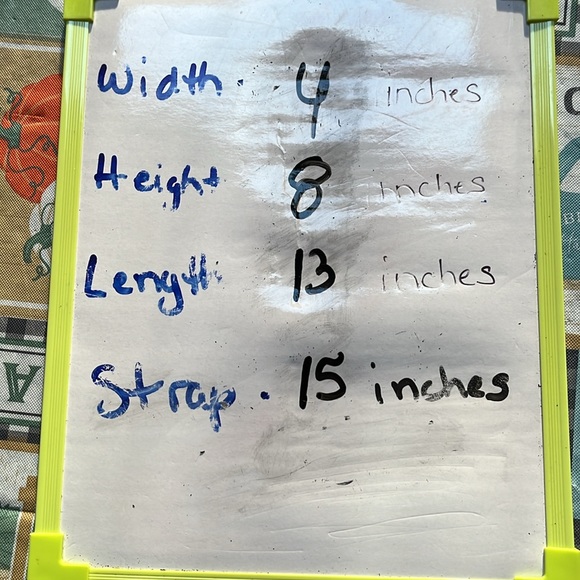 Width. 4 inches
Height 8 inches
Length: 13 inches
Strap. 15 inches